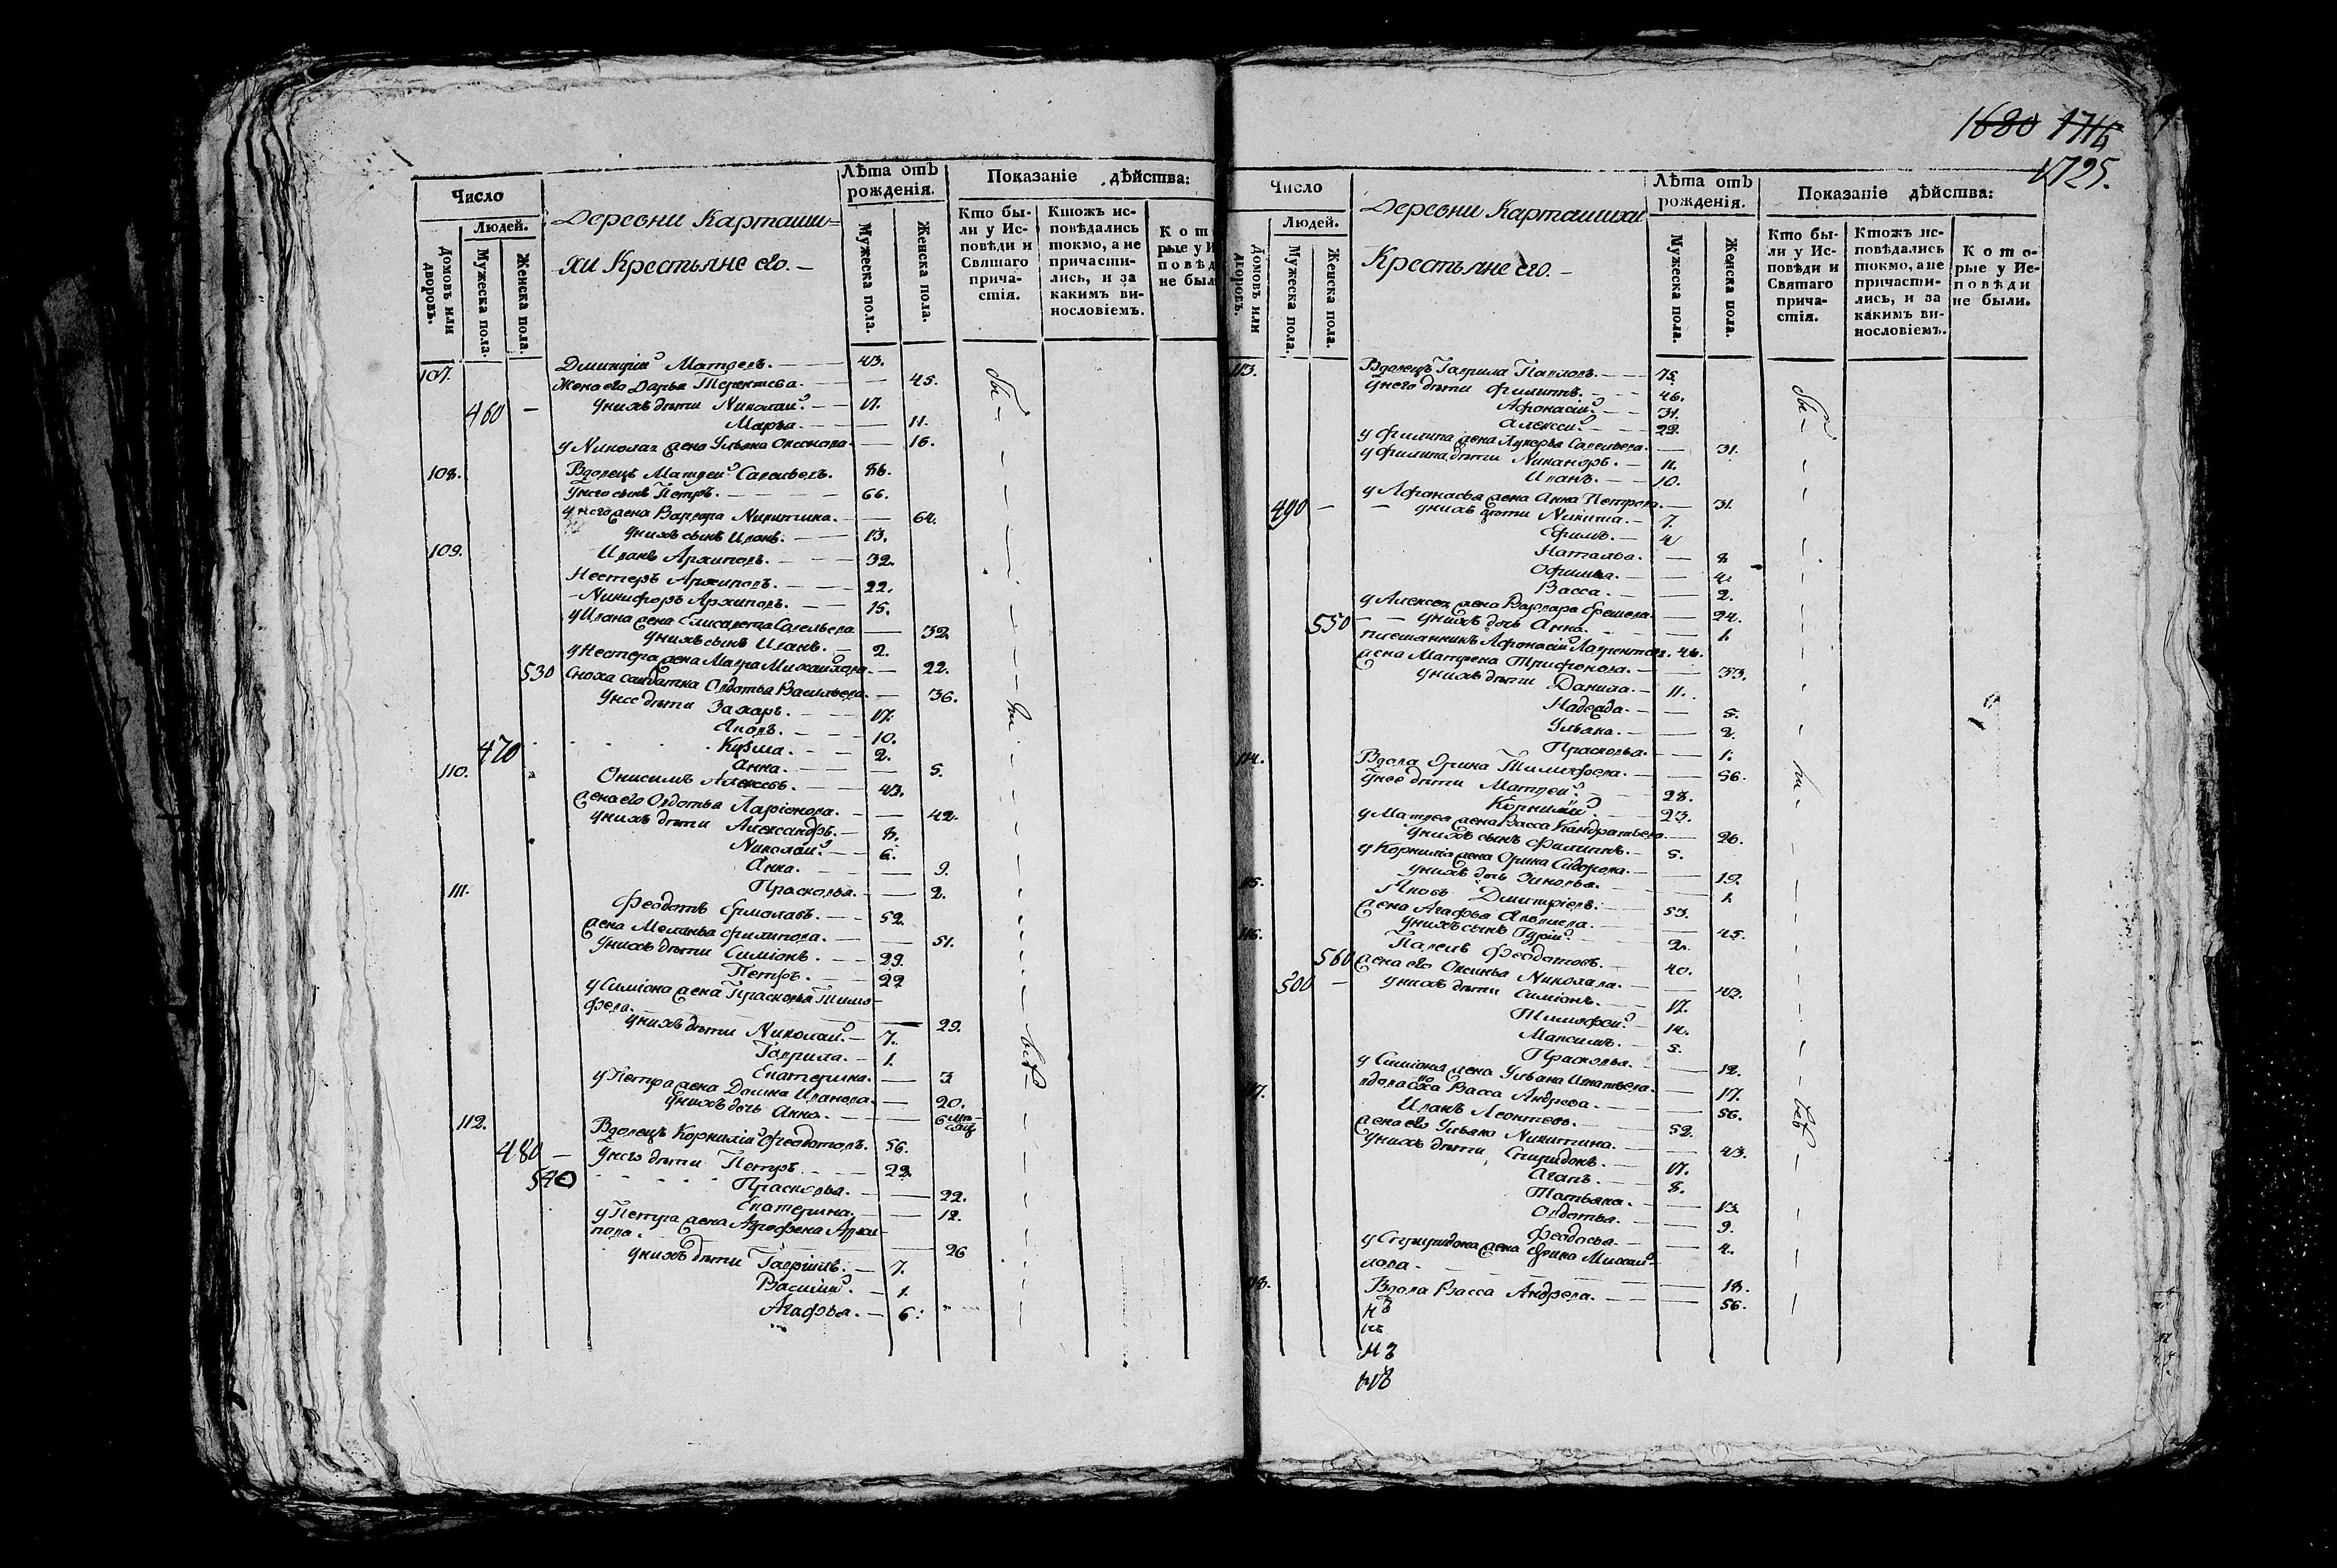 Число
Людей.
Домовъ или дворовъ.
Мужеска пола.
Женска пола.
Деревни Карташи=
хи Крестьяне его. —
Лѣта отъ рожденія.
Мужеска пола.
Женска пола.
Показаніе дѣйства:
Кто бы-
ли у Ис-
повѣди и
Святаго
прича-
стія.
Ктожъ ис-
повѣдались
токмо, а не
причасти-
лись, и за
какимъ ви-
нословіемъ.
107. Дмитрій Матвеевъ. — 43.
Жена его Дарья Терентьева. — 45.
460 — Унихъ дѣти Николай. — 17.
Марья. — 11.
у Николая жена Ульяна — 16.
108. Вдовецъ Матвей Савельевъ. 86.
Унего сынъ Петръ. — 66.
у него жена Варвара Никитина. — 64.
Унихъ сынъ Иванъ. — 13.
109. Иванъ Архиповъ. — 32.
Нестеръ Архиповъ. — 22.
Никифоръ Архиповъ. — 15.
у Ивана жена Елисавета Савельева — 32.
Унихъ сынъ Иванъ. — 2.
у Нестера жена Мавра Михайлова. — 22.
530 Сноха солдатка Овдотья Васильева. — 36.
Унее дѣти Захаръ. — 17.
Яковъ. — 10.
470 Кузма. — 2.
Анна. — 5.
110. Онисимъ Алексевъ. — 43.
жена его Овдотья Ларіонова. — 42.
Унихъ дѣти Александръ. — 8.
Николай. — 6.
Анна. — 9.
Прасковья. — 2.
111. Феодотъ Ермолаевъ. — 52.
жена Меланья Филипова. — 51.
Унихъ дѣти Симіонъ. — 29.
Петръ. — 22
у Симіона жена Прасковья Тимо-
феева. — 29.
Унихъ дѣти Николай. — 7.
Гаврила. — 1.
Екатерина. — 3
у Петра жена Домна Иванова. — 20.
Унихъ дочь Анна. — 6 мѣ-
сяц
112. Вдовецъ Корнилій Феодотовъ. 56.
480 — Унего дѣти Петръ — 29
540 Прасковья. — 22.
Екатерина. — 12.
у Петра жена Агрофена Архи-
пова. — 26
Унихъ дѣти Гавріилъ. — 7.
Василій. — 1.
Агафья. — 6.
1680 1714
1725.
Число
Людей.
Домовъ или дворовъ.
Мужеска пола.
Женска пола.
Деревни Карташихи
Крестьяне его. —
Лѣта отъ рожденія.
Мужеска пола.
Женска пола.
Показаніе дѣйства:
Кто бы-
ли у Ис-
повѣди и
Святаго
прича-
стія.
Ктожъ ис-
повѣдались
токмо, а не
причасти-
лись, и за
какимъ ви-
нословіемъ.
Кото-
рые у Ис-
повѣди
не были.
113. Вдовецъ Гаврила Павловъ. — 75.
Унего дѣти Филиппъ. — 46.
Афонасій. — 31.
Алексей. — 22.
у Филипа жена Лукерья Савельева. — 31.
у Филипа дѣти Никаноръ. — 11.
Иванъ. — 10.
у Афонасья жена Анна Петрова. — 31.
490 — унихъ дѣти Никита. — 7.
Ефимъ. — 4
Наталья. — 8
Офимья. — 4.
Васса. — 2.
у Алексея жена Варвара Еремеева — 24.
550 — унихъ дочь Анна. — 1.
племянникъ Афонасій Лаврентьев. 46.
жена Матрена Трифонова. — 33.
Унихъ дѣти Данила. — 11.
Надежда. — 5.
Ульяна. — 2.
Прасковья. — 1.
114. Вдова Орина Тимофеева. — 56.
Унее дѣти Матвей. — 28.
Корнилій. — 23.
у Матвея жена Васса Кандратьева. — 26.
Унихъ сынъ Филиппъ. — 5.
у Корнилія жена Орина Сидорова. — 19.
Унихъ дочь Зиновья. — 1.
115. Яковъ Дмитріевъ. — 53.
жена Агафья — 45.
Унихъ сынъ Гурій. — 2.
116. Павелъ Феодотовъ. — 40.
560 жена его Оксинья Николаева. — 42.
500 — Унихъ дѣти Симіонъ. — 17.
Тимофей. — 14.
Максимъ. — 5.
Прасковья. — 12.
у Симіона жена Ульяна Игнатьева. — 17.
вдова Васса Андрева. — 56.
117. Иванъ Леонтевъ. — 52.
жена его Ульяна Никитина. — 43.
Унихъ дѣти Спиридонъ. — 17.
Агапъ. — 8.
Татьяна. — 13
Овдотья. — 9.
Феодосья. — 4.
у Спиридона жена Орина Михай-
лова. — 18.
118. Вдова Васса Андрева. — 56.